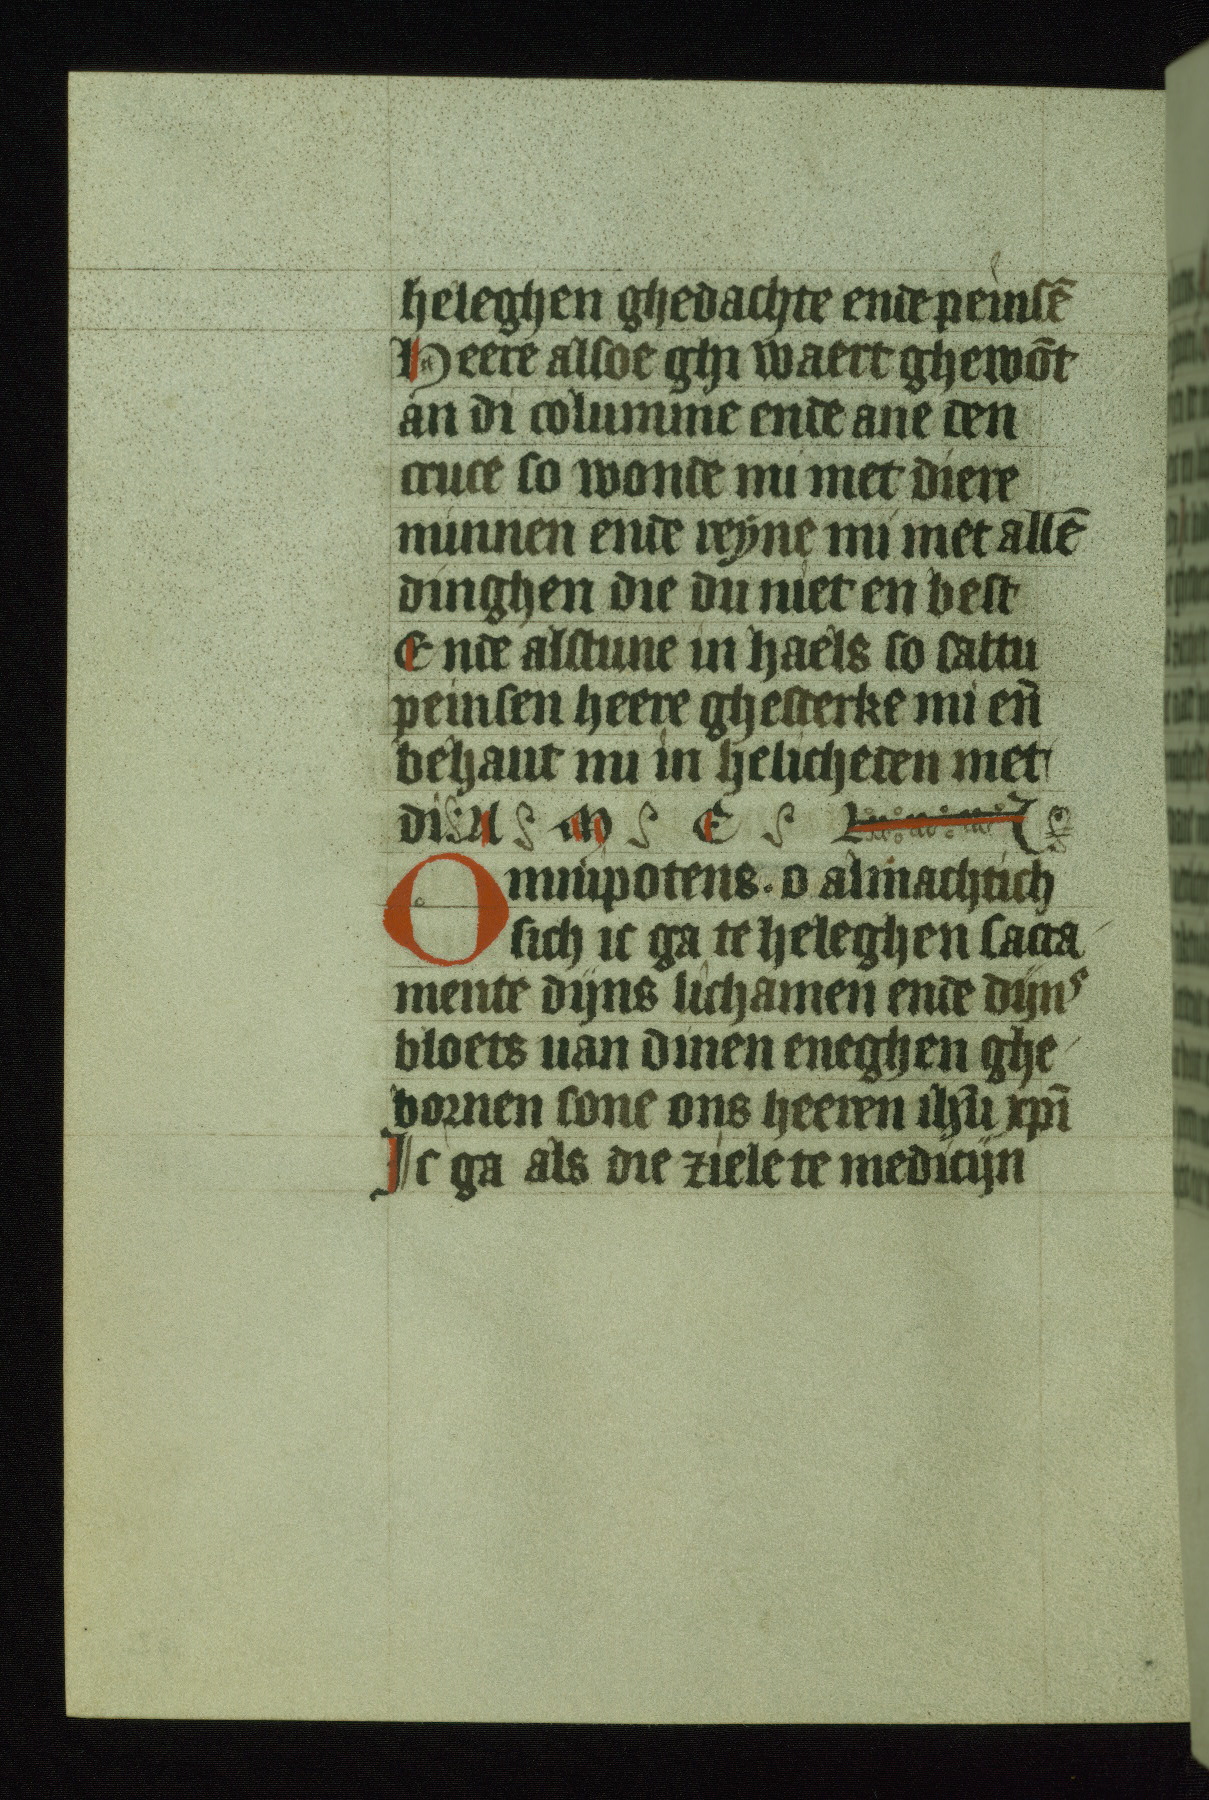 heleghen ghedachte ende peinsē
Heere alsoe ghi waert ghewōt
an di columme ende ane den
cruce so wonde mi met diere
minnen ende reyne mi met allē
dinghen die du niet en best
Ende alstune in haels so saltu
peinsen heere ghesterke mi eñ
behaut mi in helicheden met
di. A M E N
Omnipotens. o almachtich
sich ic ga te heleghen sacra
mente dijns lichamen ende dijns
bloets uan dinen eneghen ghe
bornen sone ons heeren ihū xpī
Ic ga als die ziele te medicijn